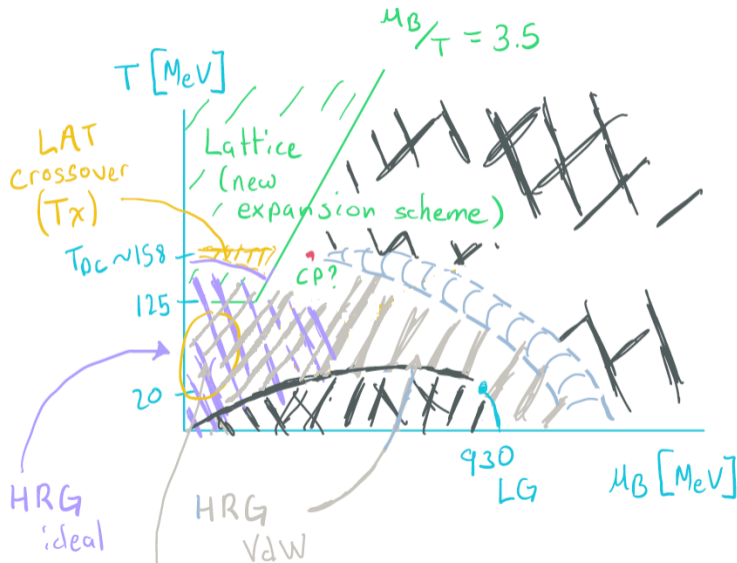 μB/T = 3.5
T [MeV]
LAT
crossover
(Tχ)
Lattice
(new
expansion scheme)
TDC ~158
CP?
125
20
930
LG
μB [MeV]
HRG
ideal
HRG
VdW